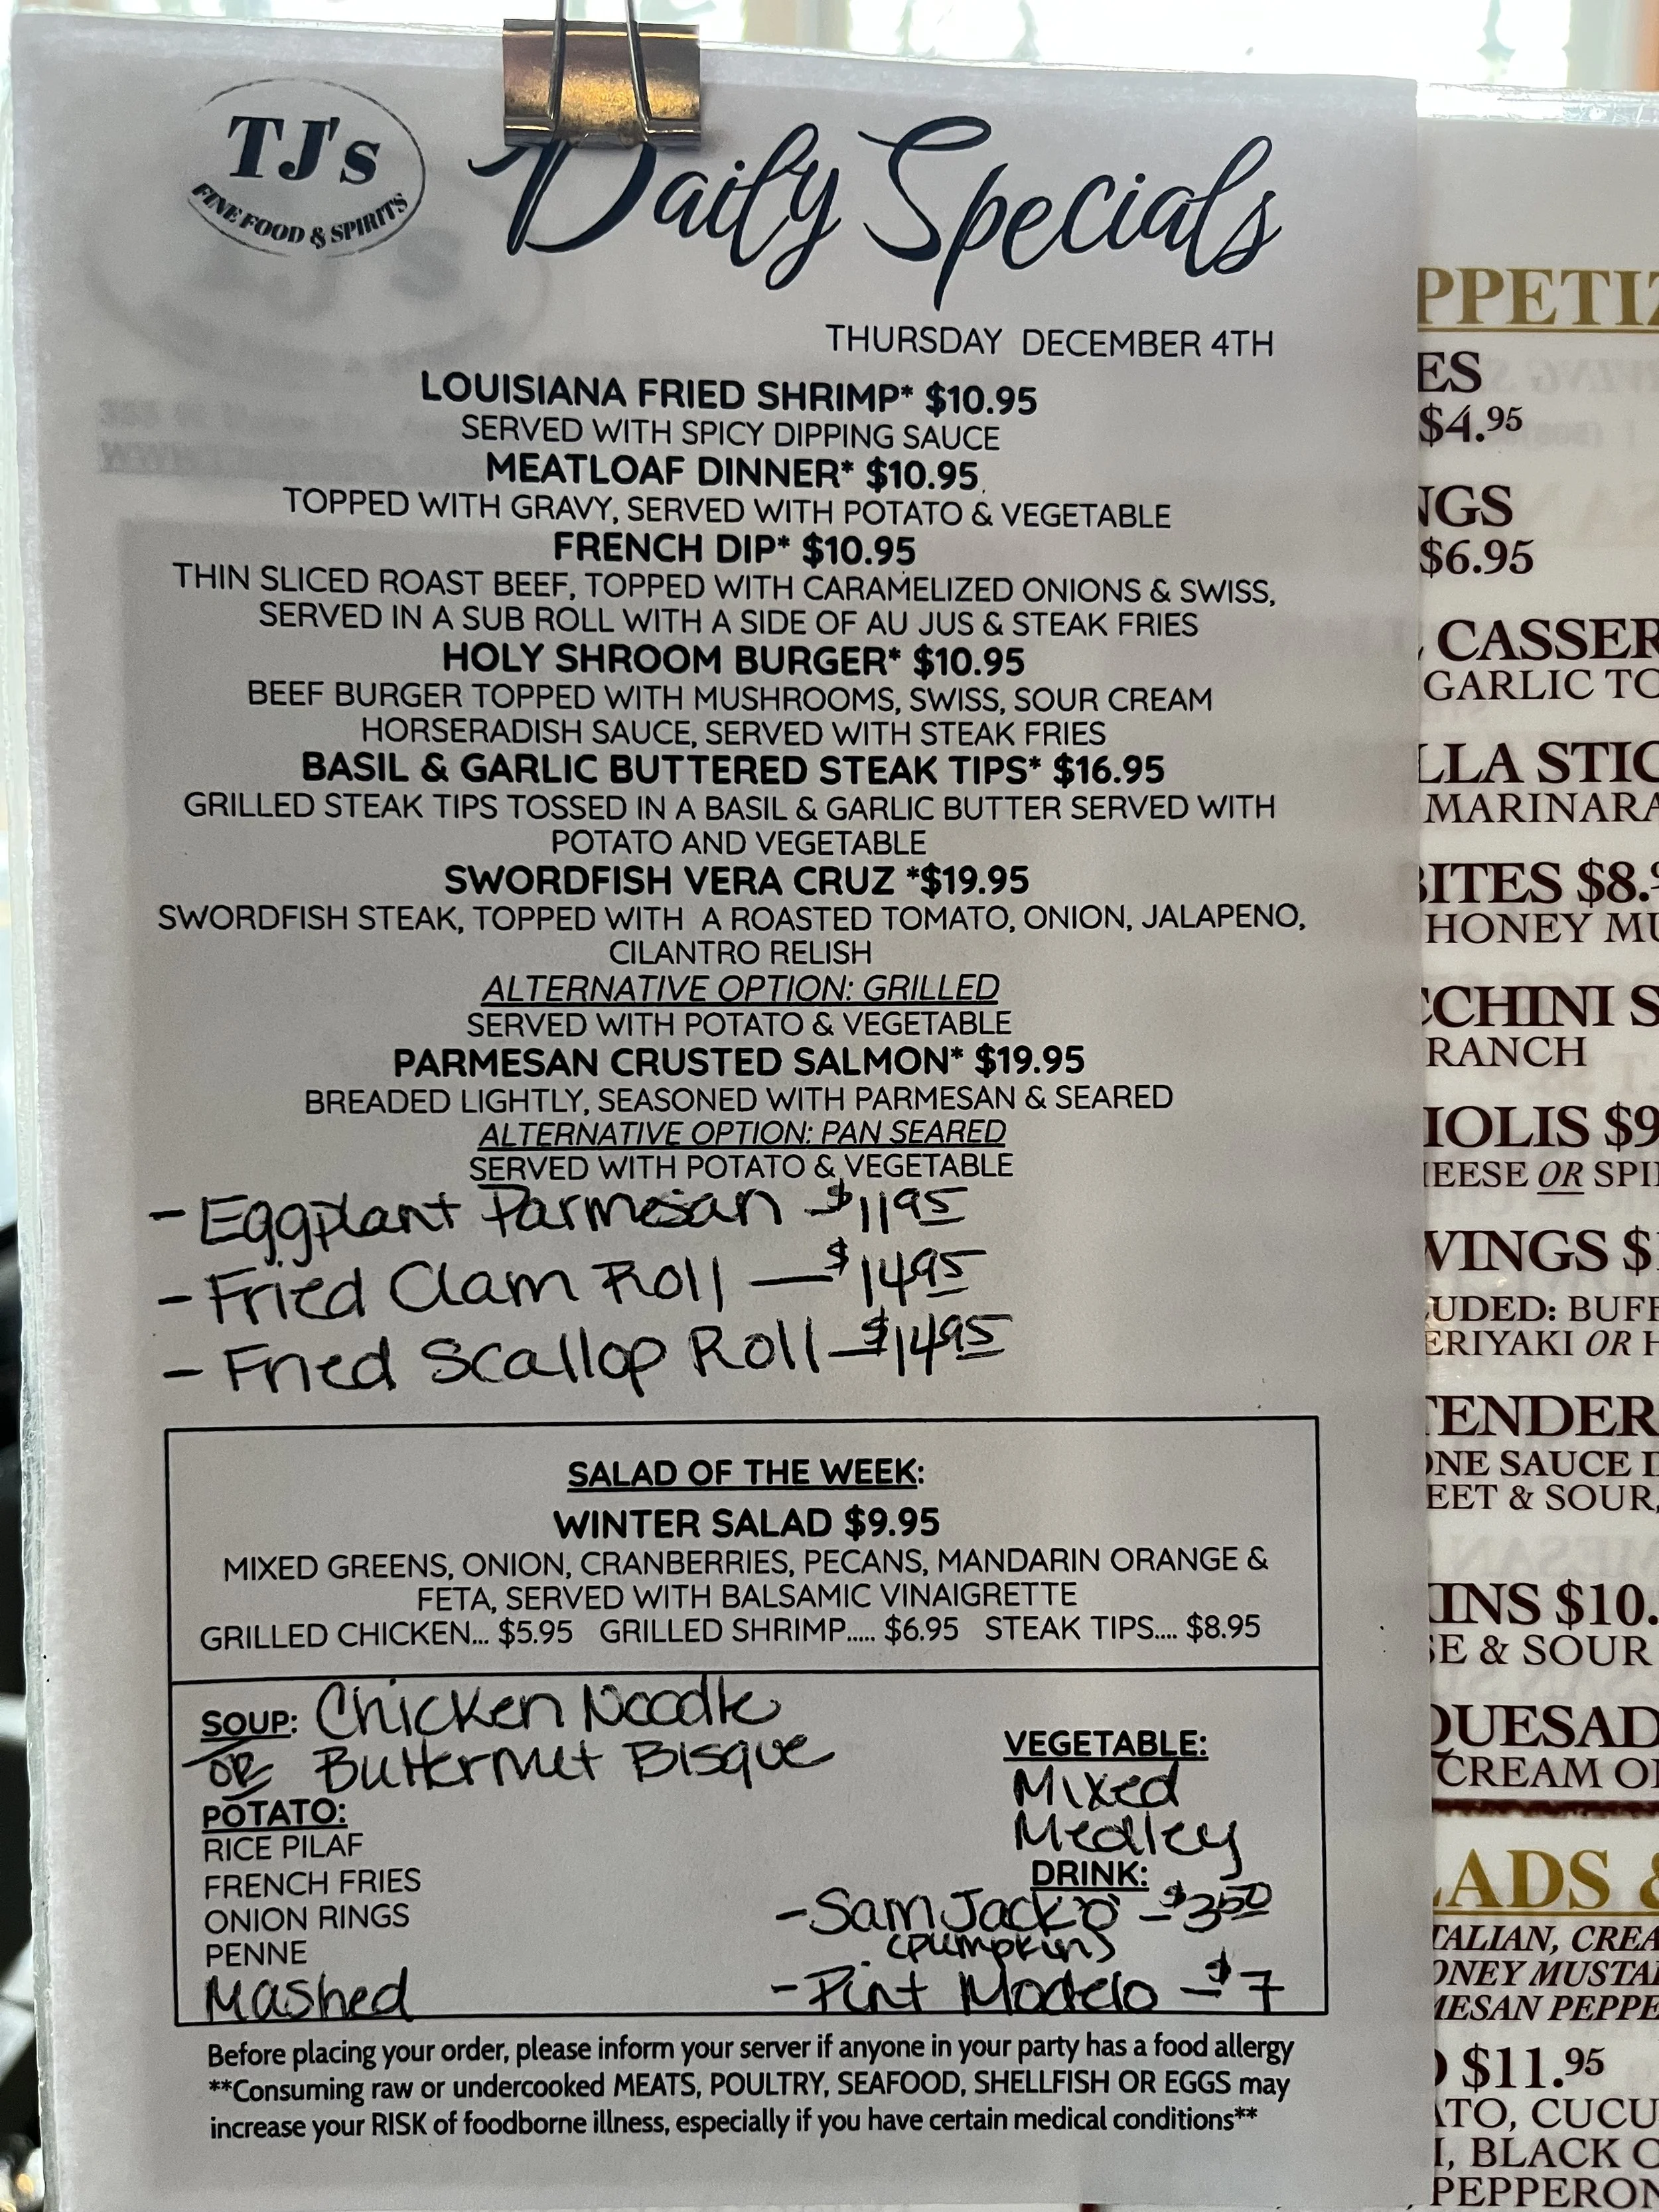 TJ's
FINE FOOD & SPIRITS
Daily Specials
THURSDAY DECEMBER 4TH
LOUISIANA FRIED SHRIMP* $10.95
SERVED WITH SPICY DIPPING SAUCE
MEATLOAF DINNER* $10.95
TOPPED WITH GRAVY, SERVED WITH POTATO & VEGETABLE
FRENCH DIP* $10.95
THIN SLICED ROAST BEEF, TOPPED WITH CARAMELIZED ONIONS & SWISS,
SERVED IN A SUB ROLL WITH A SIDE OF AU JUS & STEAK FRIES
HOLY SHROOM BURGER* $10.95
BEEF BURGER TOPPED WITH MUSHROOMS, SWISS, SOUR CREAM
HORSERADISH SAUCE, SERVED WITH STEAK FRIES
BASIL & GARLIC BUTTERED STEAK TIPS* $16.95
GRILLED STEAK TIPS TOSSED IN A BASIL & GARLIC BUTTER SERVED WITH
POTATO AND VEGETABLE
SWORDFISH VERA CRUZ *$19.95
SWORDFISH STEAK, TOPPED WITH A ROASTED TOMATO, ONION, JALAPENO,
CILANTRO RELISH
ALTERNATIVE OPTION: GRILLED
SERVED WITH POTATO & VEGETABLE
PARMESAN CRUSTED SALMON* $19.95
BREADED LIGHTLY, SEASONED WITH PARMESAN & SEARED
ALTERNATIVE OPTION: PAN SEARED
SERVED WITH POTATO & VEGETABLE
- Eggplant Parmesan $11 95
- Fried Clam Roll — $14 95
- Fried Scallop Roll — $14 95
SALAD OF THE WEEK:
WINTER SALAD $9.95
MIXED GREENS, ONION, CRANBERRIES, PECANS, MANDARIN ORANGE &
FETA, SERVED WITH BALSAMIC VINAIGRETTE
GRILLED CHICKEN... $5.95 GRILLED SHRIMP..... $6.95 STEAK TIPS.... $8.95
SOUP: Chicken Noodle
OR Butternut Bisque
POTATO:
RICE PILAF
FRENCH FRIES
ONION RINGS
PENNE
Mashed
VEGETABLE:
Mixed
Medley
DRINK:
- Sam Jack'o - $3 50
(Pumpkin)
- Pint Modelo - $7
Before placing your order, please inform your server if anyone in your party has a food allergy
**Consuming raw or undercooked MEATS, POULTRY, SEAFOOD, SHELLFISH OR EGGS may
increase your RISK of foodborne illness, especially if you have certain medical conditions**
PPETIZ
ES
$4.95
NGS
$6.95
CASSER
GARLIC TO
LLA STIC
MARINARA
BITES $8.
HONEY MU
CCHINI S
RANCH
IOLIS $9
HEESE OR SPI
WINGS $
UDED: BUFF
ERIYAKI OR H
TENDER
ONE SAUCE I
EET & SOUR,
INS $10.
SE & SOUR
QUESAD
CREAM O
LADS &
TALIAN, CREA
ONEY MUSTA
MESAN PEPPE
$11.95
ATO, CUCU
I, BLACK O
PEPPERON